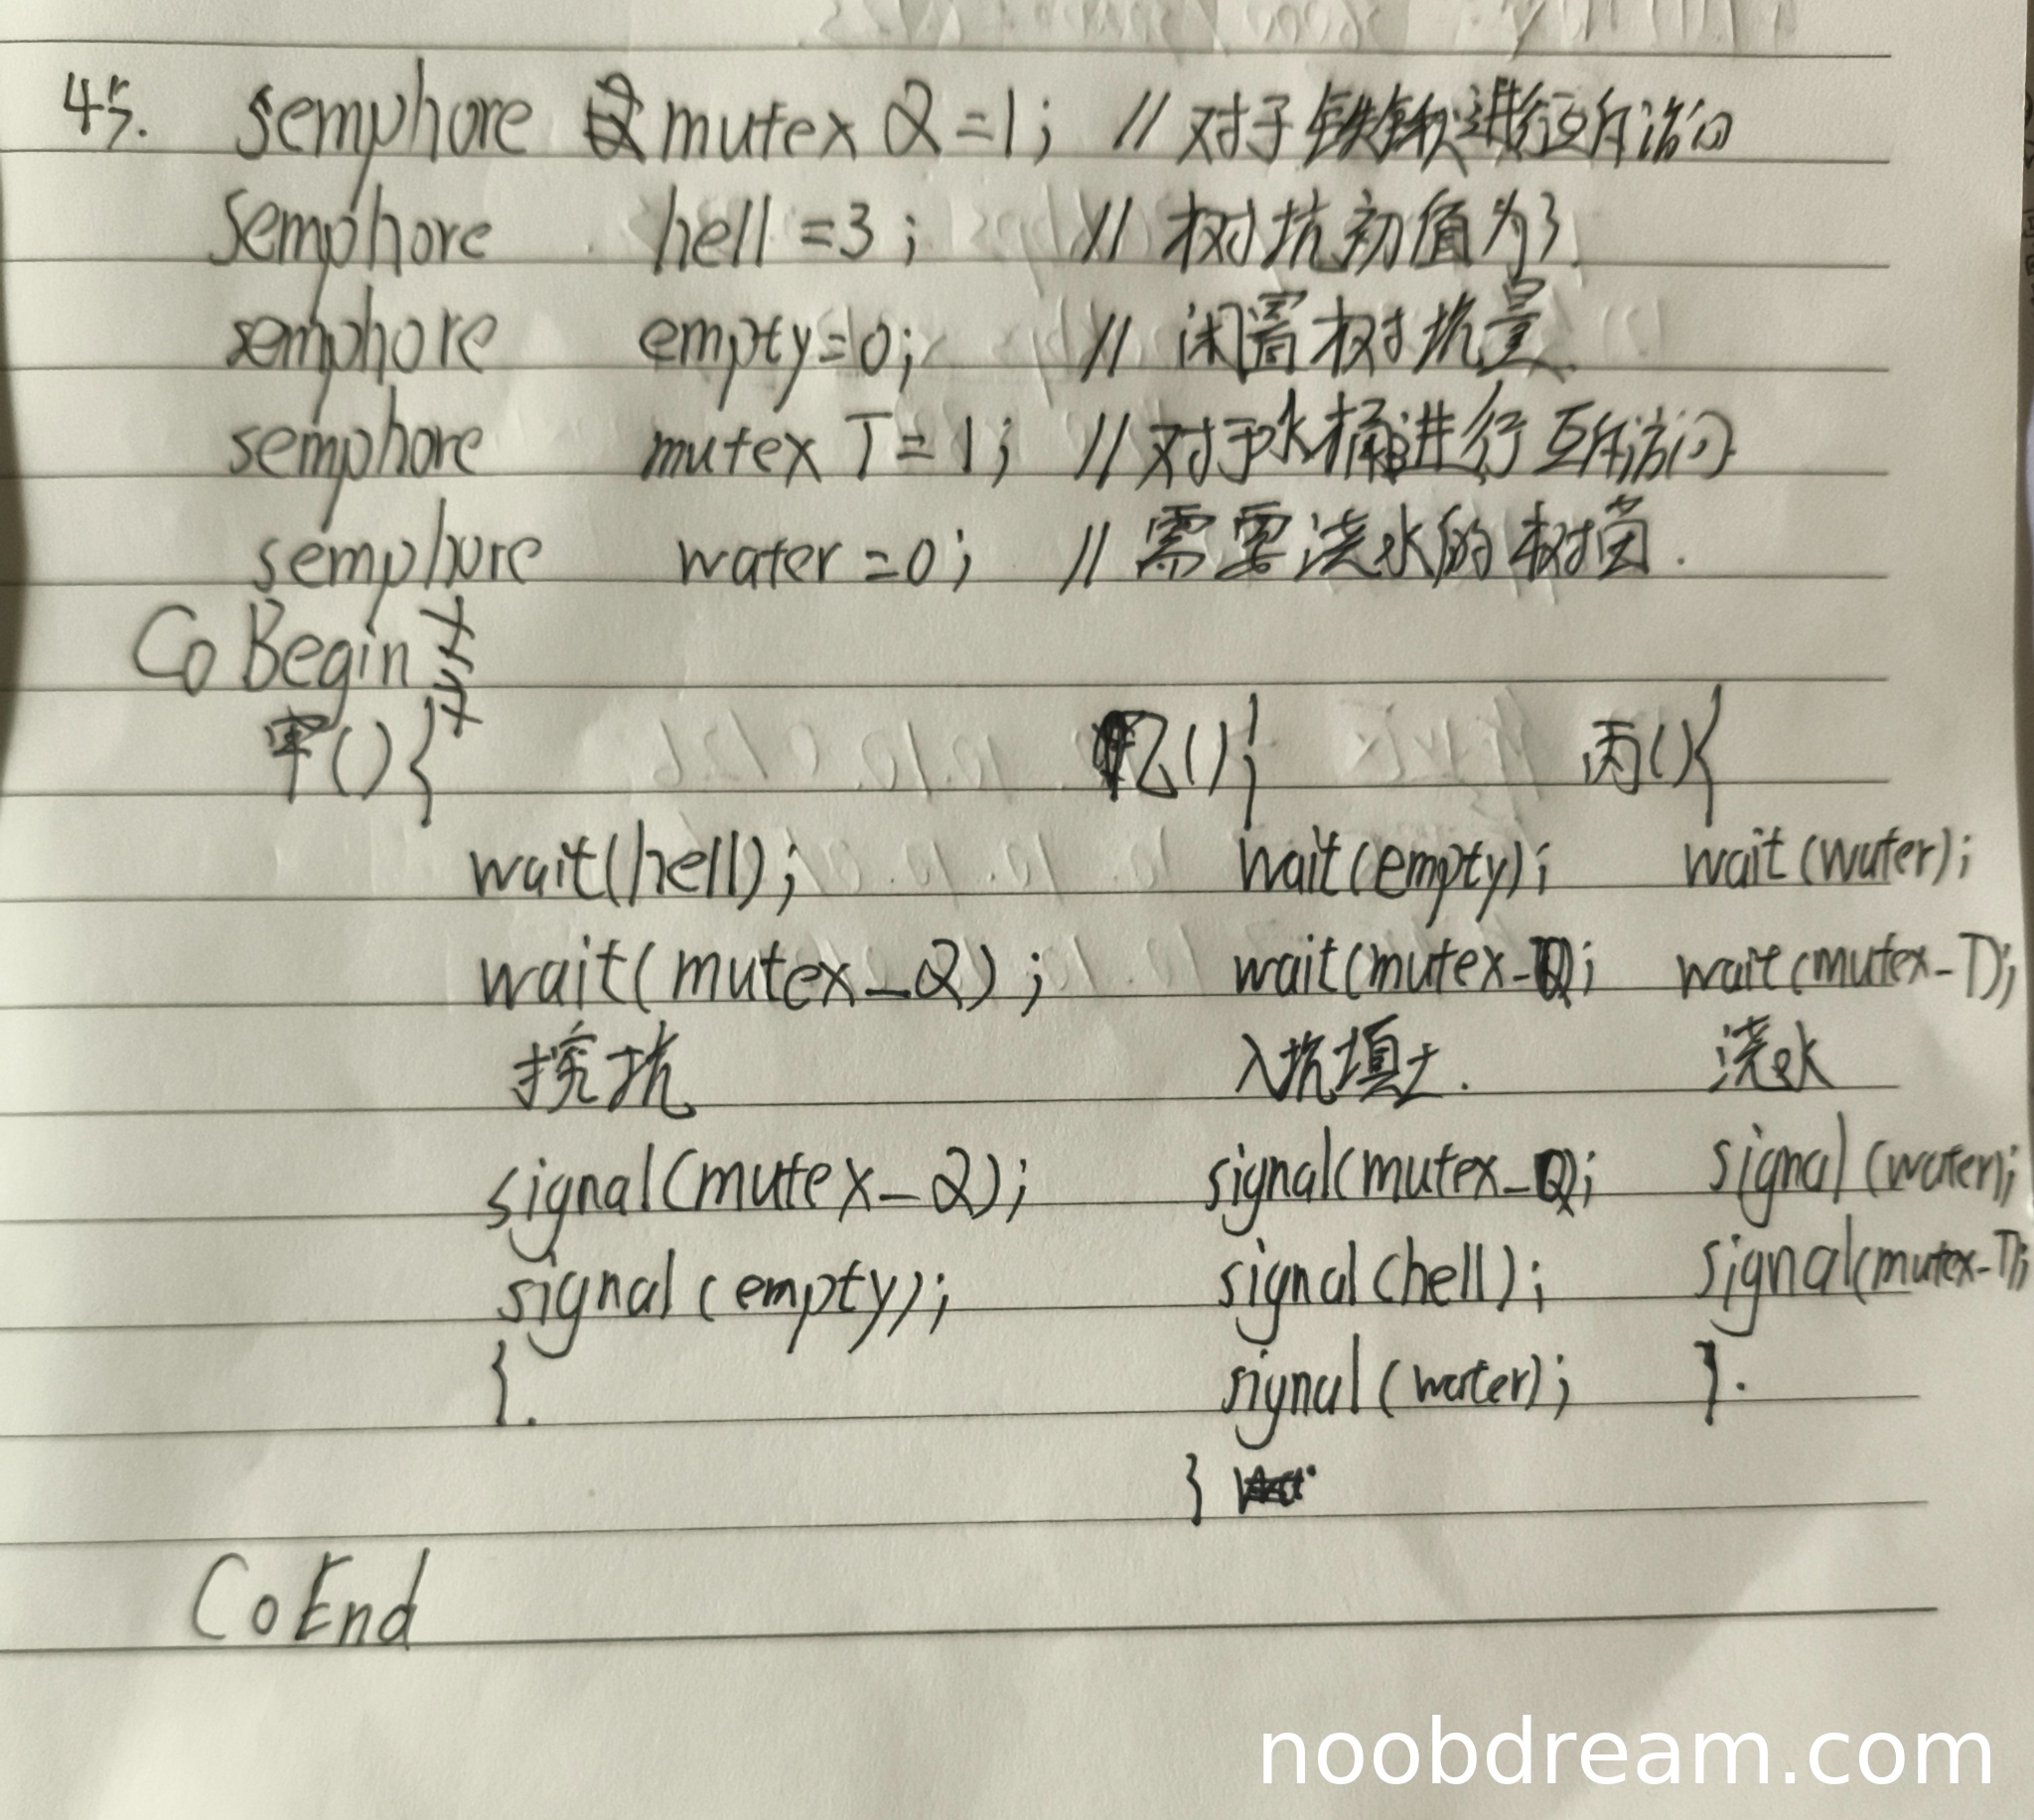 45. semphore mutex Q=1; // 对于铁锹进行互斥访问
semphore hell =3; // 树坑初值为3.
semphore empty=0; // 闲置树坑量.
semphore mutex T=1; // 对于水桶进行互斥访问
semphore water=0; // 需要浇水的树苗.
Co Begin
甲(){ 乙(){ 丙(){
wait(hell); wait(empty); wait(water);
wait(mutex_Q); wait(mutex_Q); wait(mutex_T);
挖坑 入坑填土. 浇水
signal(mutex_Q); signal(mutex_Q); signal(water);
signal(empty); signal(hell); signal(mutex_T);
}. signal(water); }.
}
CoEnd
noobdream.com